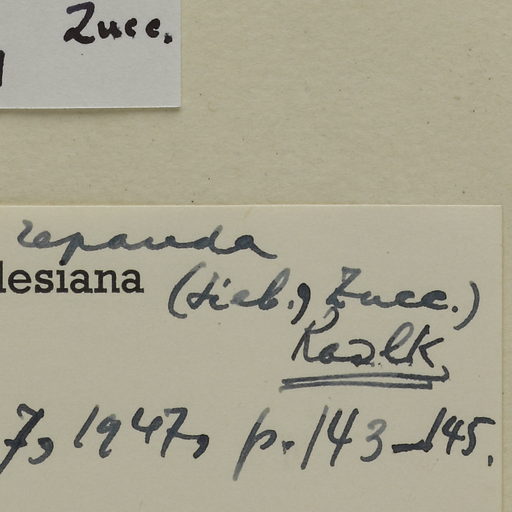 Zucc.
repanda
lesiana
(Sieb., Zucc.)
7, 1947, p. 143-145.